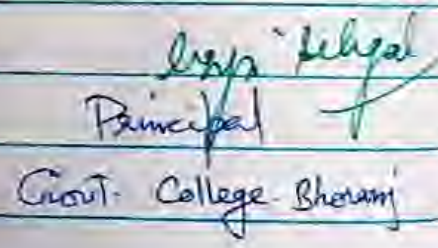 Sehgal
Principal
Govt. College Bhoranj